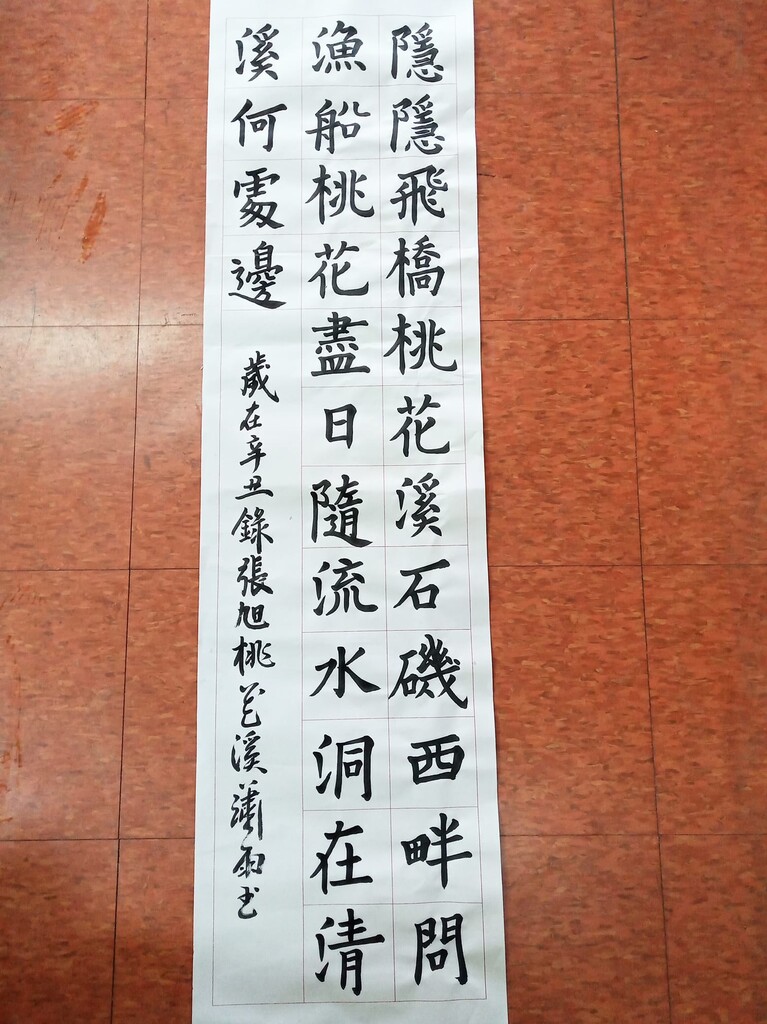 隱隱飛橋桃花溪石磯西畔問
漁船桃花盡日隨流水洞在清
溪何處邊
歲在辛丑錄張旭桃花溪蕭雨書